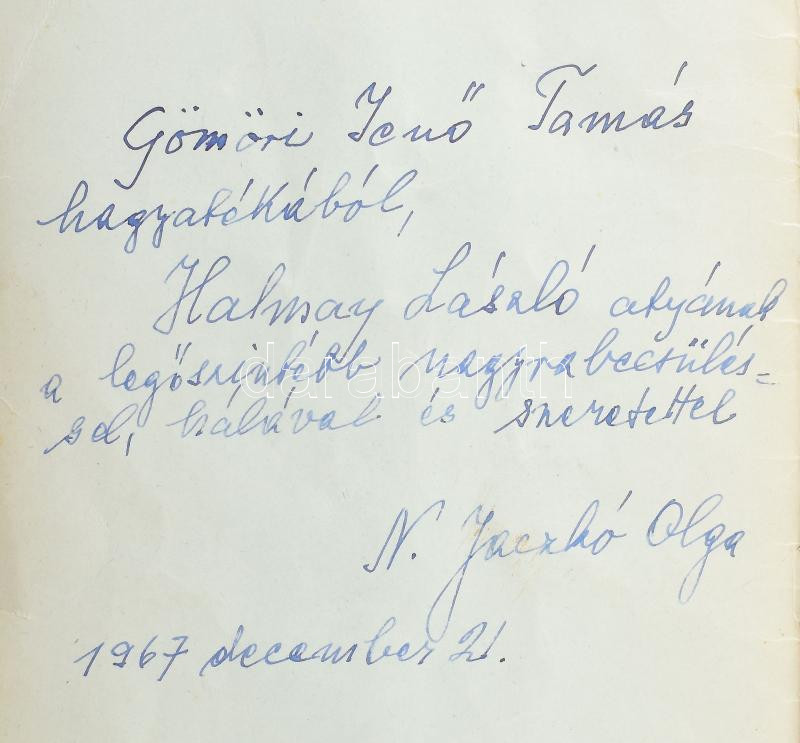 Gömöri Jenő Tamás
hagyatékából,
Halmay László atyának
a legőszintébb nagyrabecsülés-
sel, hálával és szeretettel
N. Jaczkó Olga
1967 december 21.
darabanth